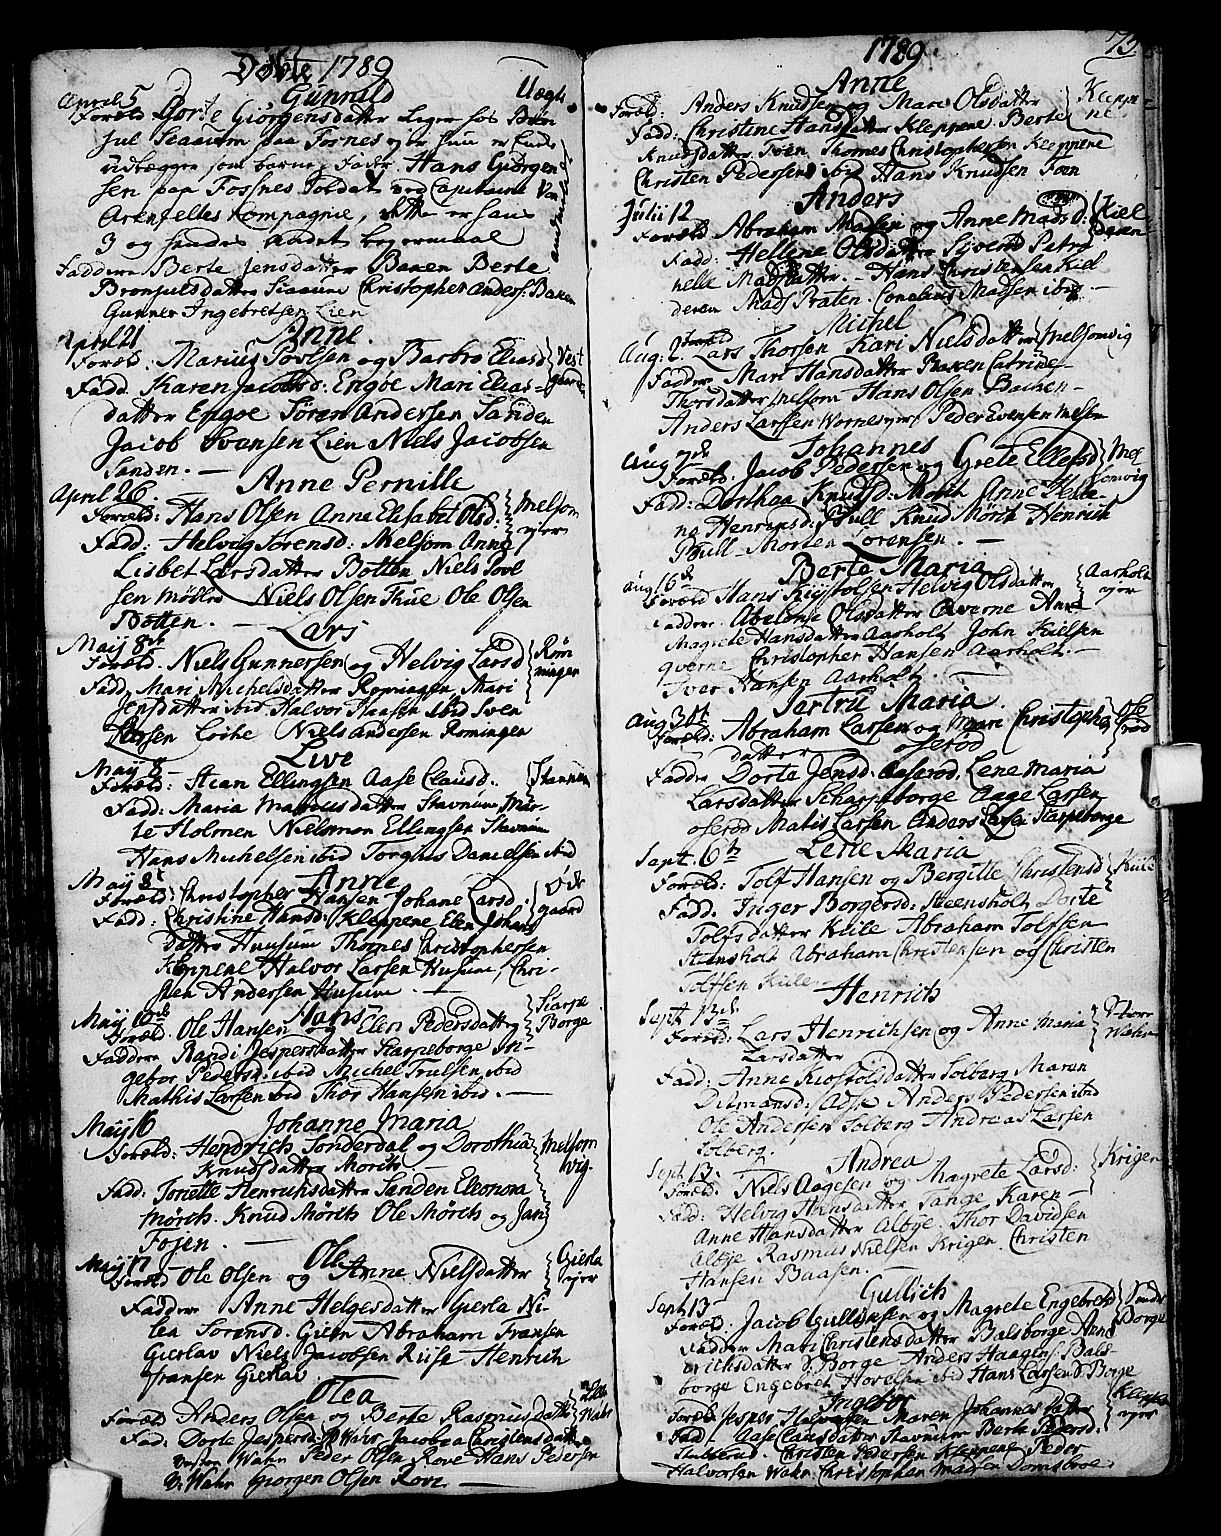 Döbte 1789
Gunnild Uægte
April 5 Foræld Dorte Giörgensdatter Lager hos Bron
jul Siaaum paa Fosnes og er hun er
udlægger som barne Fader Hans Giörgen
sen paa Fosnes Soldat ved Capitaine Von
Arenfeltes Compagnie, dette er hans
3 og hendes Andet begermaal
Faddere Berte Jensdatter Baxen Berte
Bronjulsdatter Siaaum Christopher Anders: Baxen
Gunner Ingebretsen Lien
April 21 Anne
Foræld: Marius Povelsen og Barbro Eliasd
Fadd Karen Jacobsd: Engöe Mari Elias-
datter Engöe Sören Andersen Sanden
Jacob Svensen Lien Niels Jacobsen
Sanden. —
April 26. Anne Pernille
Foræld: Hans Olsen Anne Elisabet Olsd: Melsom
Fadd: Helvig Sörensd: Melsom Anne eyer
Lisbet Larsdatter Botten Niels Povl
sen Niels Olsen Thue Ole Olsen
Botten. —
Lars
Maij 8de
Foræld. Niels Gunnersen og Helvig Larsd Röm
Fadd Mari Michelsdatter Romingen Mari minger
Jensdatter ibid Halvor Haasen ibid Sven
Larsen Niels Andersen Romingen
Live
Maij 8
Foræld: Stian Ellingsen Aase Clausd. Stannum
Fadd: Maria Marcusdatter Stavnum Mar-
te Holmen Nielsmon Ellingsen Stavnum
Hans Michelsen ibid Torgius Danielsen ibid
Maij 8de Anne
Foræld: Christopher Hansen Johane Larsd. Öde
Fadd: Christine Hansd: Kleppene Elen Johans gaard
datter Huusum Thomes Christophersen
Kleppene Halvor Larsen Husum, Chri-
sten Andersen Husum —
Maij 10de Hans
Foræld: Ole Hansen og Elen Pedersdatter Skarpe
Faddere Randi Jespersdatter Skarpeborge In- Borge
gebor Pedersd: ibid Michel Trulsen ibid
Mathis Larsen ibid Thor Hansen ibid. —
Maij 16 Johanne Maria
Foræld: Hendrich Sönderdal og Dorothea Melsom
Knudsdatter Morch — vig.
Fadd: Joriette Henrichsdatter Sanden Eleonora
Mörch. Knud Mörch Ole Mörch og Jan
Fosen. —
Maij 17 Ole
Foræld Ole Olsen og Anne Nielsdatter Gierla
eyer
Faddere Anne Helgesdatter Gierla Ni-
lea Sörensd. Gieln Abraham Fransen
Gierlav Niels Jacobsen Ruse Henrich
Fransen Gierlav
Olea
Foræld Anders Olsen og Berte Rasmusdatter
Fad: Dorte Jespersd: Wahr Jacobea Christensdatter
Wahr Peder Olsen Rove Hans Pedersen
V: Wahr Giorgen Olsen Rove —
1789 79
Anne
Foræld: Anders Knudsen og Mari Olsdatter Kleppe
Fadd: Christine Hansdatter Kleppene Berte ne
Knudsdatter Foen Thomes Christophersen Kleppene
Christen Pedersen ibid Hans Knudsen Foen
Anders
Julii 12
Foræld: Abraham Madsen og Anne Mads D: Kiel
Fadd: Hellene Olsdatter Syverød Petro deren
nelle Madsdatter. Hans Christensen Kiel
deren Mads Praten. Cornelius Madsen ibid —
Michel
Aug: 2. Foræld Lars Thorsen Kari Nielsdatter Melsomvig
Faddere Mari Hansdatter Baxen Catrine
Thorsdatter Melsom Hans Olsen Bachen-
Anders Larssen Wornes eyer Peder Evensen Melsom
Johannes
Aug 9de Foræld: Jacob Pedersen og Grete Ellefsd Mel
Fadd: Dorthea Knudsd: Mörch Anne Hele- somvig
na Henrensd: Knud Mörch Henrich
Morten Lorensen. —
Berte Maria
Aug 16de
Foræld Hans Kiystolsen Helvig Olsdatter Aarholt
Faddere Abelone Olsdatter Qverne Anne eyer
Magrete Hansdatter Aarholt John Kielsen
qverne Christopher Hansen Aarholt. —
Iver Hansen Aarholt. —
Jartru Maria
Aug 30te Foræld: Abraham Larssen og Mari Christophers Ose
datter Oserød rød
Faddere Dorte Jensd: Aaserød, Lene Maria
Larsdatter Scharpeborge Aage Larsen
oserød Matis Larsen Anders Larsen Skarpeborge
Sept. 6te Lene Maria
Foræld: Tolf Hansen og Bergitte Christensd Kiile
Fadd. Inger Borgersd: Steensholt Dorte
Tolfsdatter Kiile Abraham Tolfsen
Stensholt Abraham Christensen og Christen
Tolfsen Kiilen
Henrich
Sept 13de
Foræld: Lars Henrichsen og Anne Maria
Larsdatter
Fadd: Anne Kiostolsdatter Solberg Maren
Ditmansd: Anders Pedersen ibid
Ole Andersen Solberg Andreas Larsen
Solberg.
Sept 13. Andrea
Foræld. Niels Aagesen og Magrete Larsd: Krigen
Fadd: Helvig Hansdatter Tange Karen
Anne Hansdatter Albye. Thor Davidsen
Albye Rasmus Nielsen Krigen. Christen
Hansen Baasen. —
Gullich
Sept 13
Foræld. Jacob Gullichsen og Magrete Engebretsd Sönder
Faddere Mari Christensdatter Balsborge Anne Borge
erichsdatter S: Borge Anders Haagens Bals
borge Engebret Hovelsen ibid Hans Larsen S. Borge
Ingebor
Foræld Jesper Halvorsen Maren Johannesdatter Kleppe
Fadd: Aase Clausdatter Stavnum Berte Pedersd: eyer
Christen Pedersen Kleppene Peder
Halvorsen Wahr Christopher Madsen Domsboe.